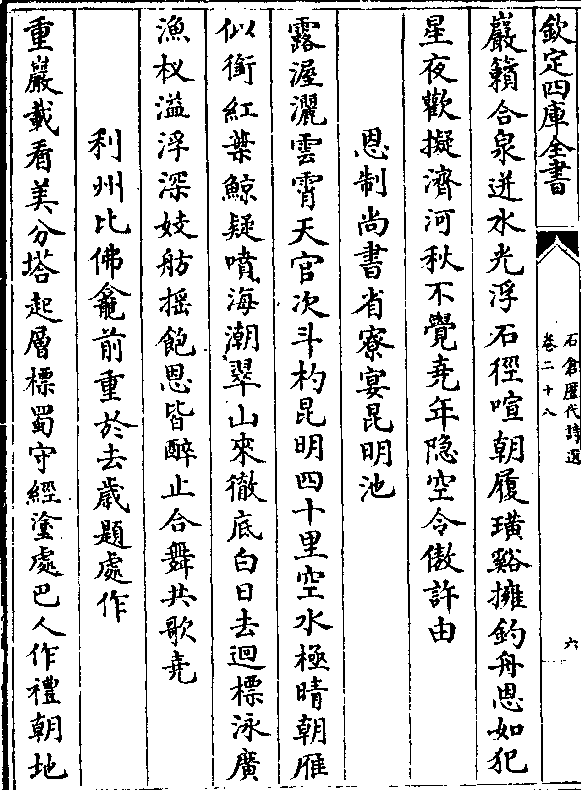 欽定四庫全書
石倉歷代詩選
卷二十八
六
巖籟合泉迸水光浮石徑喧朝履璜谿擁釣舟恩如犯
星夜歡擬濟河秋不覺堯年隐空令傲許由
恩制尚書省寮宴昆明池
露渥灑雲霄天官次斗杓昆明四十里空水極晴朝雁
似銜紅葉鯨疑噴海潮翠山來徹底白日去迴標泳廣
漁杈溢浮深妓舫揺飽恩皆醉止合舞共歌堯
利州比佛龕前重於去歲題處作
重巖載看美分塔起層標蜀守經塗處巴人作禮朝地